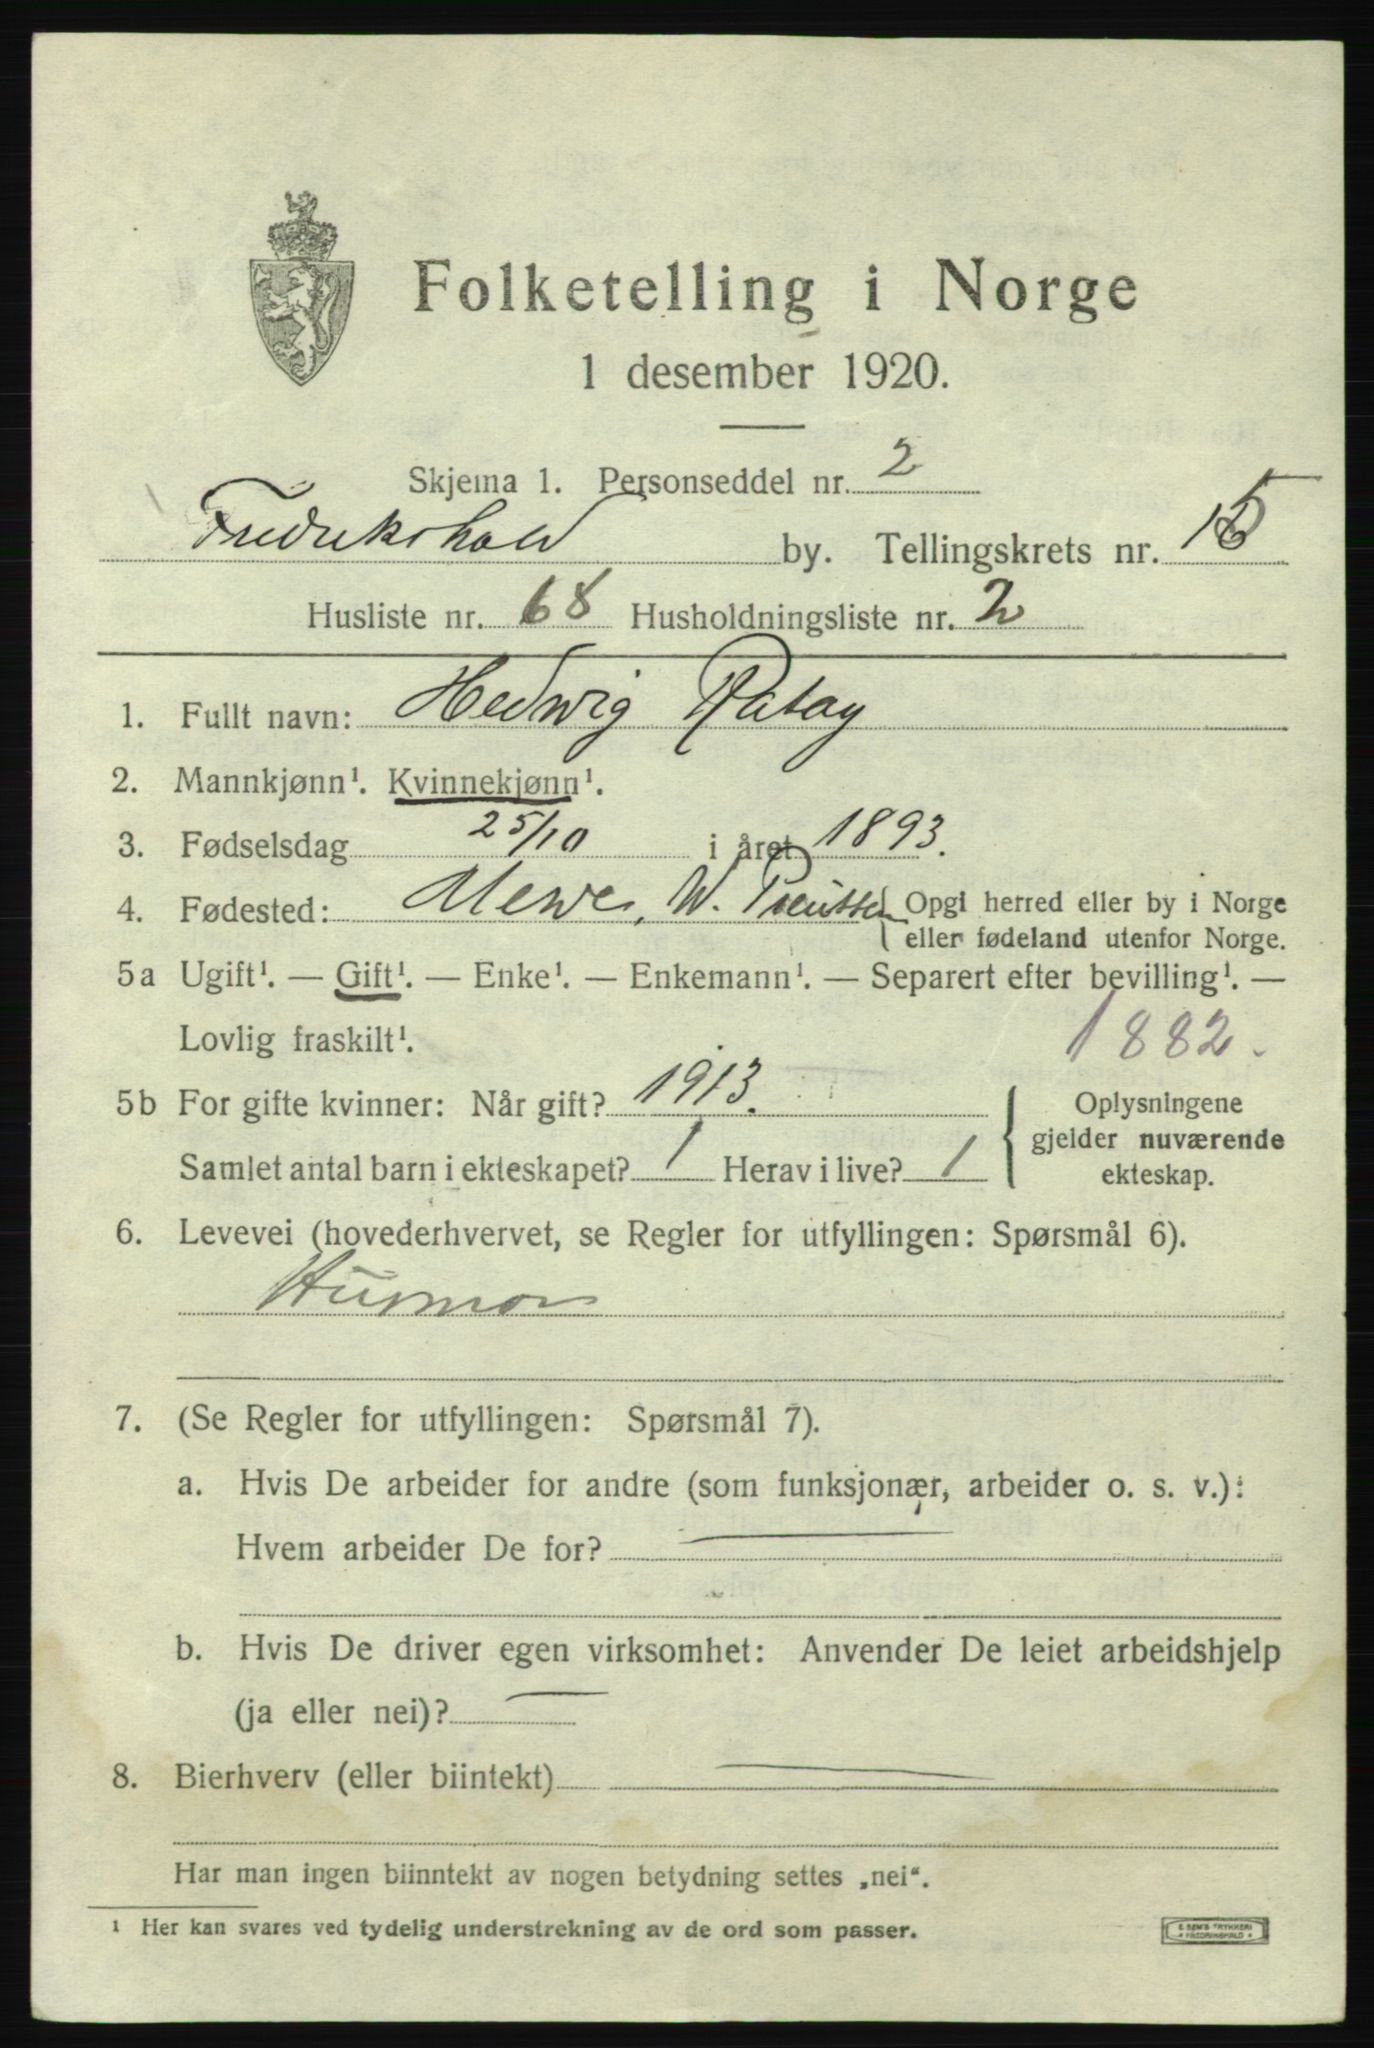 Folketelling i Norge
1 desember 1920.
Skjema 1. Personseddel nr. 2
Fredrikshald by. Tellingskrets nr. 15
Husliste nr. 68 Husholdningsliste nr. 2
1. Fullt navn: Hedwig Ratay
2. Mannkjønn¹. Kvinnekjønn¹.
3. Fødselsdag 25/10 i året 1893.
4. Fødested: Mewe, W. Preussen { Opgi herred eller by i Norge
eller fødeland utenfor Norge.
5a Ugift¹. — Gift¹. — Enke¹. — Enkemann¹. — Separert efter bevilling¹. —
Lovlig fraskilt¹. 1882.
5b For gifte kvinner: Når gift? 1913. { Oplysningene
gjelder nuværende
Samlet antal barn i ekteskapet? 1 Herav i live? 1 ekteskap.
6. Levevei (hovederhvervet, se Regler for utfyllingen: Spørsmål 6).
Husmor
7. (Se Regler for utfyllingen: Spørsmål 7).
a. Hvis De arbeider for andre (som funksjonær, arbeider o. s. v.):
Hvem arbeider De for? —
b. Hvis De driver egen virksomhet: Anvender De leiet arbeidshjelp
(ja eller nei)? —
8. Bierhverv (eller biintekt) —
Har man ingen biinntekt av nogen betydning settes „nei“.
¹ Her kan svares ved tydelig understrekning av de ord som passer.
E. SEM'S TRYKKERI
* FREDRIKSHALD *